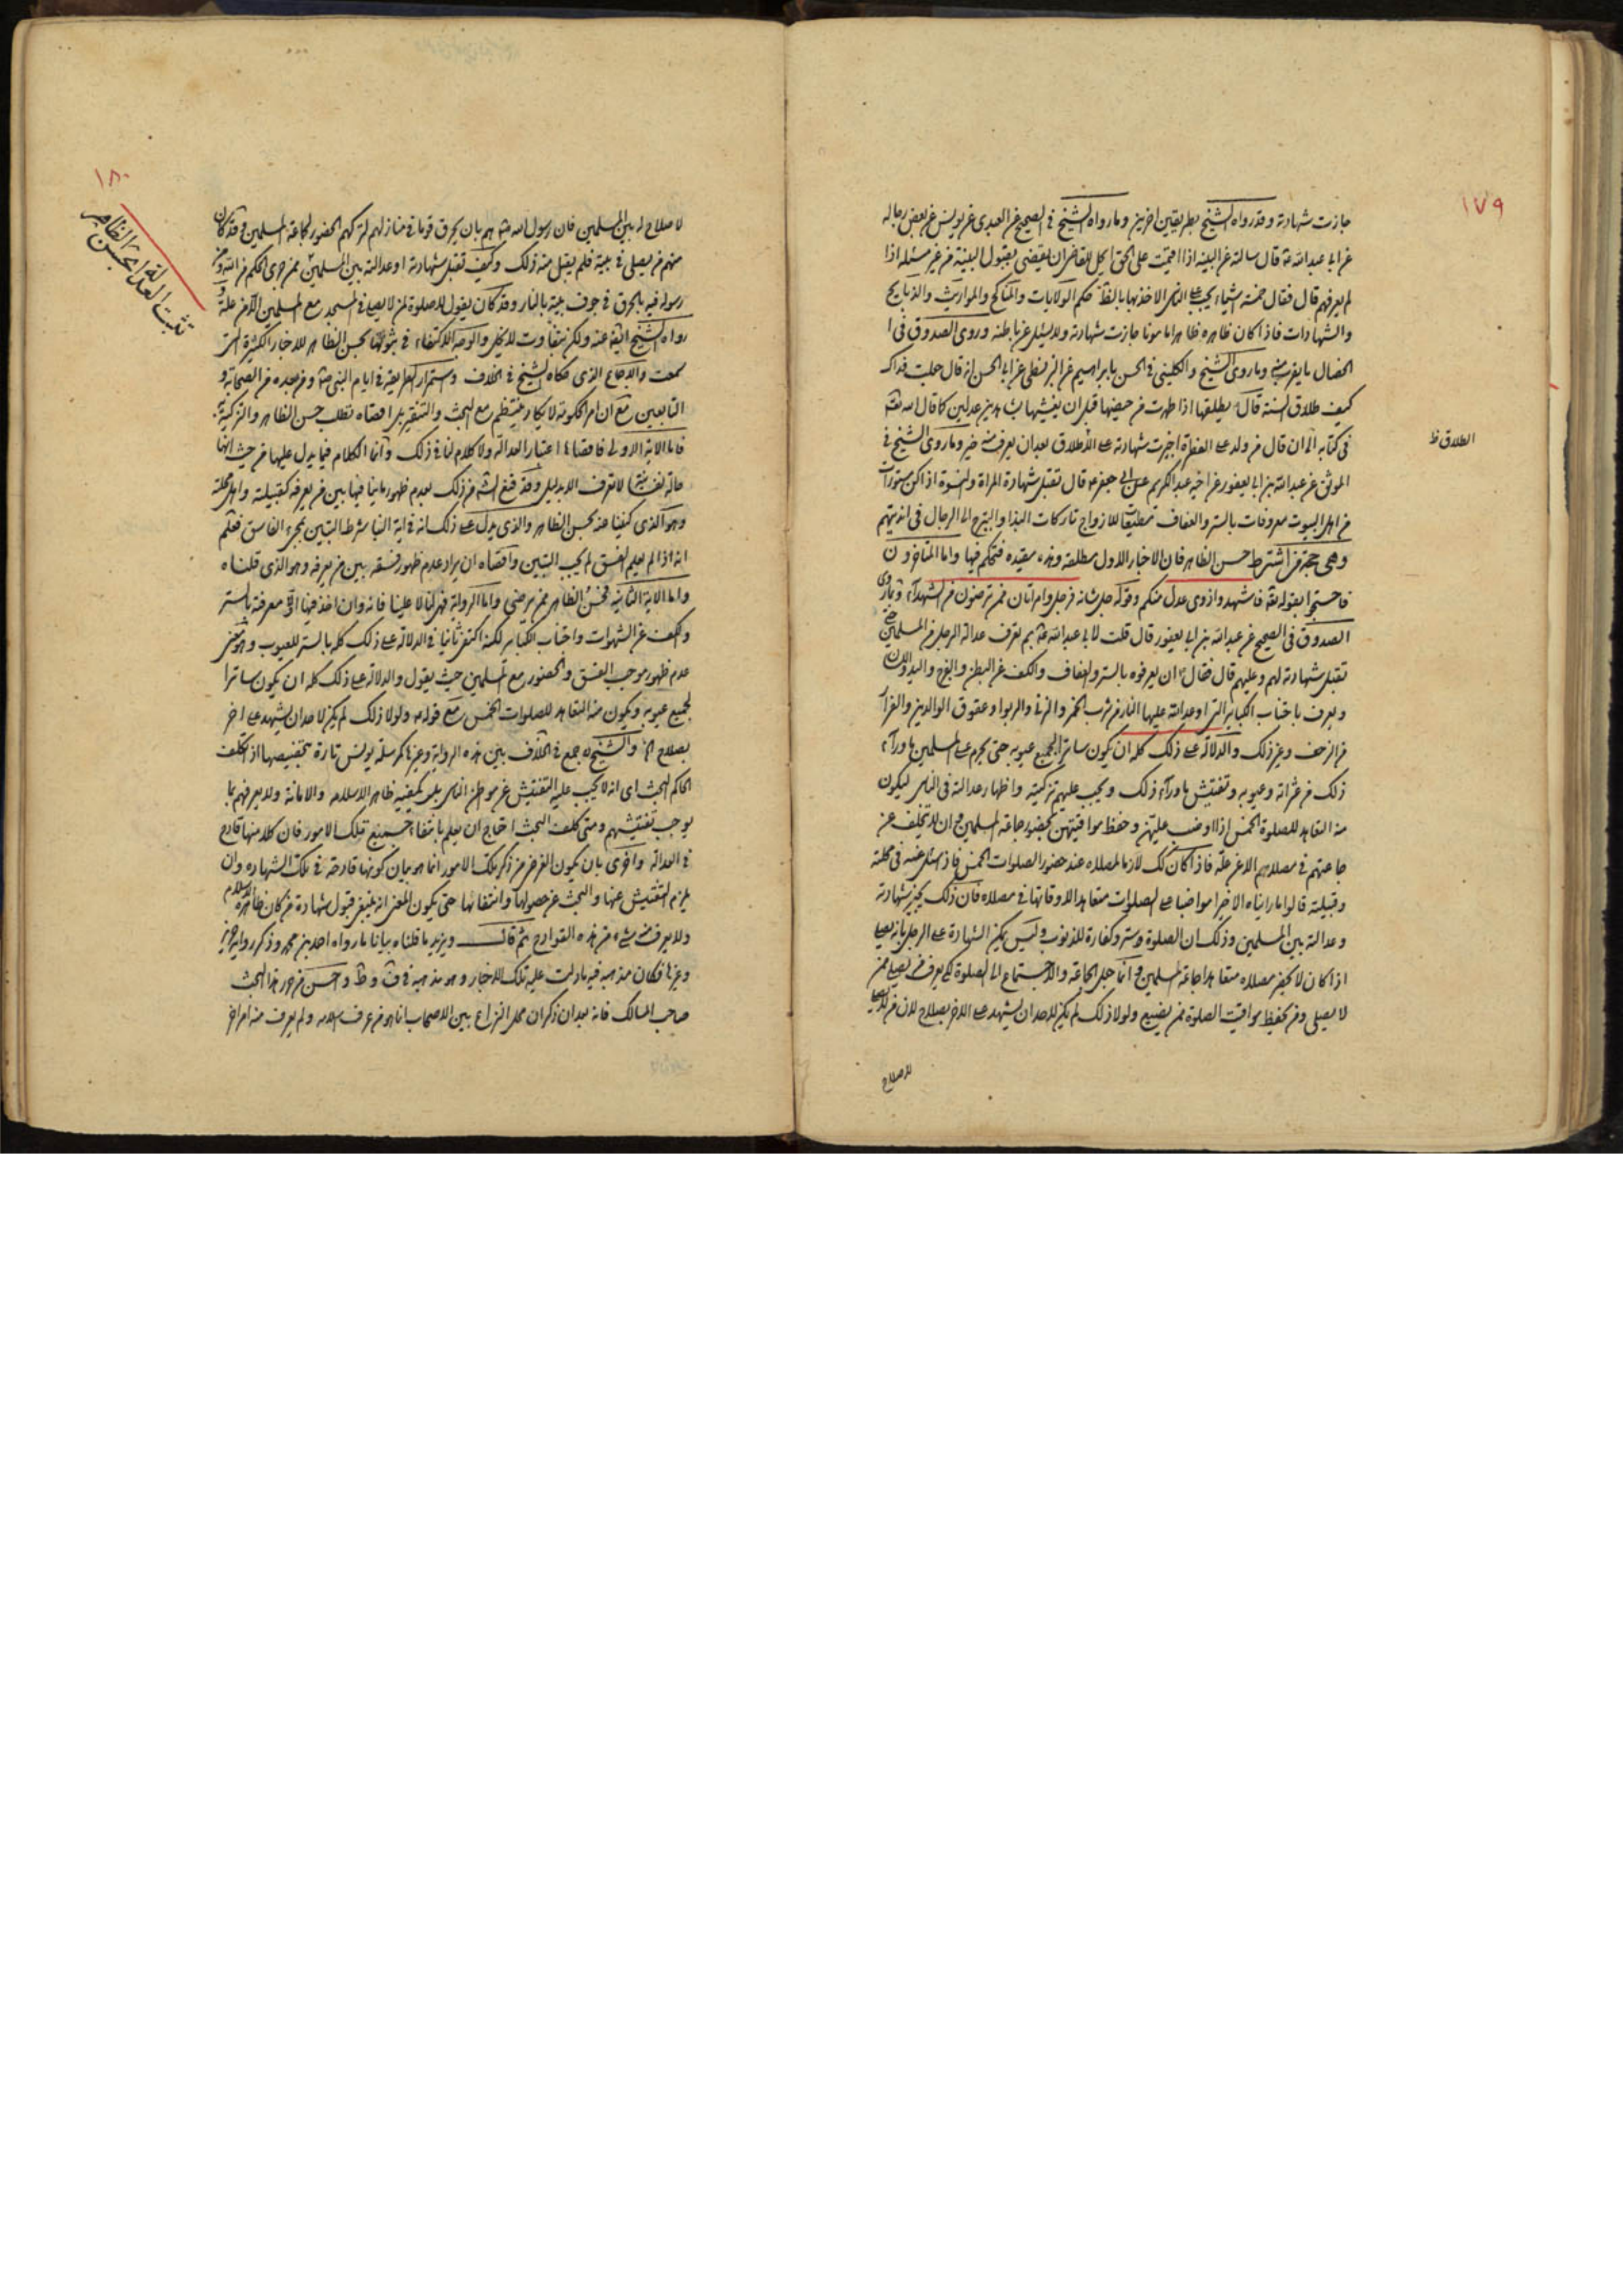 ١٧٩
جازت شهادته وقد رواه الشيخ بطريقين اخرين وما رواه الشيخ في الصحيح عن العبيدي عن يونس عن بعض رجاله
عن ابي عبد الله ع قال سالته عن البينة اذا اقيمت على الحق ايحل للقاضي ان يقضي بقول البينة من غير مسئلة اذا
لم يعرفهم قال فقال خمسة اشياء يجب على الناس الاخذ بها بالظ حكم الولايات والمناكح والمواريث والذبايح
والشهادات فاذا كان ظاهره ظاهرا مامونا جازت شهادته ولا يسئل عن باطنه وروى الصدوق في ا
الخصال ما يقرب منه وما روى الشيخ والكليني في الحسن بابراهيم عن البزنطي عن ابي الحسن انه قال جعلت فداك
كيف طلاق السنة قال يطلقها اذا طهرت من حيضها قبل ان يغشيها بشاهدين عدلين كما قال الله تعالى
في كتابه الى ان قال من ولد على الفطرة اجيزت شهادته على الطلاق بعد ان يعرف منه خير وما روى الشيخ في
الطلاق ظ
الموثق عن عبد الله بن ابي يعفور عن اخيه عبد الكريم عن ابي جعفر ع قال تقبل شهادة المراة والنسوة اذا كن مستورات
من اهل البيوت معروفات بالستر والعفاف مطيعات للازواج تاركات البذا والتبرج الى الرجال في انديتهم
وهي حجة من اشترط حسن الظاهر فان الاخبار الاول مطلقة وهذه مقيدة فتحكم فيها واما المتاخرون
فاحتجوا بقوله تعالى فاشهدوا ذوي عدل منكم وقوله جل شانه فرجل وامراتان ممن ترضون من الشهدآء وبما روى
الصدوق في الصحيح عن عبد الله بن ابي يعفور قال قلت لابي عبد الله ع بم تعرف عدالة الرجل من المسلمين حتى
تقبل شهادته لهم وعليهم قال فقال ان يعرفوه بالستر والعفاف والكف عن البطن والفرج واليد واللسان
ويعرف باجتناب الكباير التي اوعد الله عليها النار من شرب الخمر والزنا والربوا وعقوق الوالدين والفرار
من الزحف وغير ذلك والدلالة على ذلك كله ان يكون ساترا لجميع عيوبه حتى يحرم على المسلمين ما ورآء
ذلك من عثراته وعيوبه وتفتيش ما ورآء ذلك ويجب عليهم تزكيته واظهار عدالته في الناس ليكون
منه التعاهد للصلوة الخمس اذا واظب عليهن وحفظ مواقيتهن بحضور جماعة المسلمين وان لا يتخلف عن
جماعتهم في مصلاهم الا عن علة فاذا كان كك لازما لمصلاه عند حضور الصلوات الخمس فاذا سئل عنه في محلته
وقبيلته قالوا ما راينا منه الا خيرا مواظبا على الصلوات متعاهدا لاوقاتها في مصلاه فان ذلك يجيز شهادته
وعدالته بين المسلمين وذلك ان الصلوة ستر وكفارة للذنوب وليس يمكن الشهادة على الرجل بانه يصلي
اذا كان لا يحضر مصلاه ويتعاهد جماعة المسلمين وانما جعل الجماعة والاجتماع الى الصلوة لكي يعرف من يصلي ممن
لا يصلي ومن يحفظ مواقيت الصلوة ممن يضيع ولولا ذلك لم يمكن لاحد ان يشهد على الاخر بصلاح لان من لا يصلي
لا صلاح
١٨٠
تثبت العدالة بحسن الظاهر
لا صلاح له بين المسلمين فان رسول الله ص هم بان يحرق قوما في منازلهم لتركهم الحضور لجماعة المسلمين وقد كان
منهم من يصلي في بيته فلم يقبل منه ذلك وكيف تقبل شهادته او عدالته بين المسلمين ممن جرى الحكم من الله ومن
رسوله فيه بالحرق في جوف بيته بالنار وقد كان يقول لا صلوة لمن لا يصلي في المسجد مع المسلمين الا من علة و
رواه الشيخ ايضا عنه ولكن بتفاوت لا يخل والوجه الاكتفاء في ثبوتها بحسن الظاهر للاخبار الكثيرة التي
سمعت والاجماع الذي حكاه الشيخ في الخلاف واستمرار الطريقة في ايام النبي ص ومن بعده من الصحابة و
التابعين مع ان امر الحكومة لا يكاد ينتظم مع البحث والتنقير بل اقصاه تطلب حسن الظاهر والتزكية
فاما الاية الاولى فاقصاها اعتبار العدالة ولا كلام لنا في ذلك وانما الكلام فيما يدل عليها من حيث انها
حالة نفسية لا تعرف الا بدليل وقد قنع الش من ذلك بعدم ظهور ما ينافيها بين من يعرفه كقبيلته واهل محلته
وهو الذي كنينا عنه بحسن الظاهر والذي يدل على ذلك انه في اية النبا شرط التبين بمجيء الفاسق فعلم
انه اذا لم يعلم الفسق لم يجب التبين واقصاه ان يراد عدم ظهور فسقه بين من يعرفه وهو الذي قلناه
واما الاية الثانية فحسن الظاهر ممن يرضى واما الرواية فهي لنا لا علينا فانه وان اخذ فيها اولا معرفته بالستر
والكف عن الشهوات واجتناب الكباير لكنه اكتفى ثانيا في الدلالة على ذلك كله بالستر للعيوب وهو معنى
عدم ظهور موجب الفسق والحضور مع المسلمين حيث يقول والدلالة على ذلك كله ان يكون ساترا
لجميع عيوبه ويكون منه التعاهد للصلوات الخمس مع قوله ولولا ذلك لم يمكن لاحد ان يشهد على اخر
بصلاح الخ والشيخ ره جمع في الخلاف بين هذه الرواية وغيرها كمرسلة يونس تارة بتخصيصها اذا تكلف
الحاكم البحث اى انه لا يجب عليه التفتيش عن بواطن الناس بل يكفيه ظاهر الاسلام والامانة ولا يعرفهم بما
يوجب تفتيشهم ومتى كلف البحث احتاج ان يعلم بانتفاء جميع تلك الامور فان كلا منها قادح
في العدالة واخرى بان يكون الغرض من ذكر تلك الامور انما هو بيان كونها قادحة في تلك الشهاده وان
يلزم التفتيش عنها والبحث عن حصولها وانتفائها حتى يكون المعنى انه ينبغي قبول شهادة من كان ظاهره الاسلام
ولا يعرف منه شيء من هذه القوادح ثم قال ويزيد ما قلناه بيانا ما رواه احمد بن محمد وذكر رواية حريز
وغيرها فكان مذهبه فيه ما دلت عليه تلك الاخبار وهو مذهبه في ف وط واحسن من حرر هذا البحث
صاحب المسالك فانه بعد ان ذكر ان محل النزاع بين الاصحاب انما هو من عرف اسلامه ولم يعرف منه امر اخر